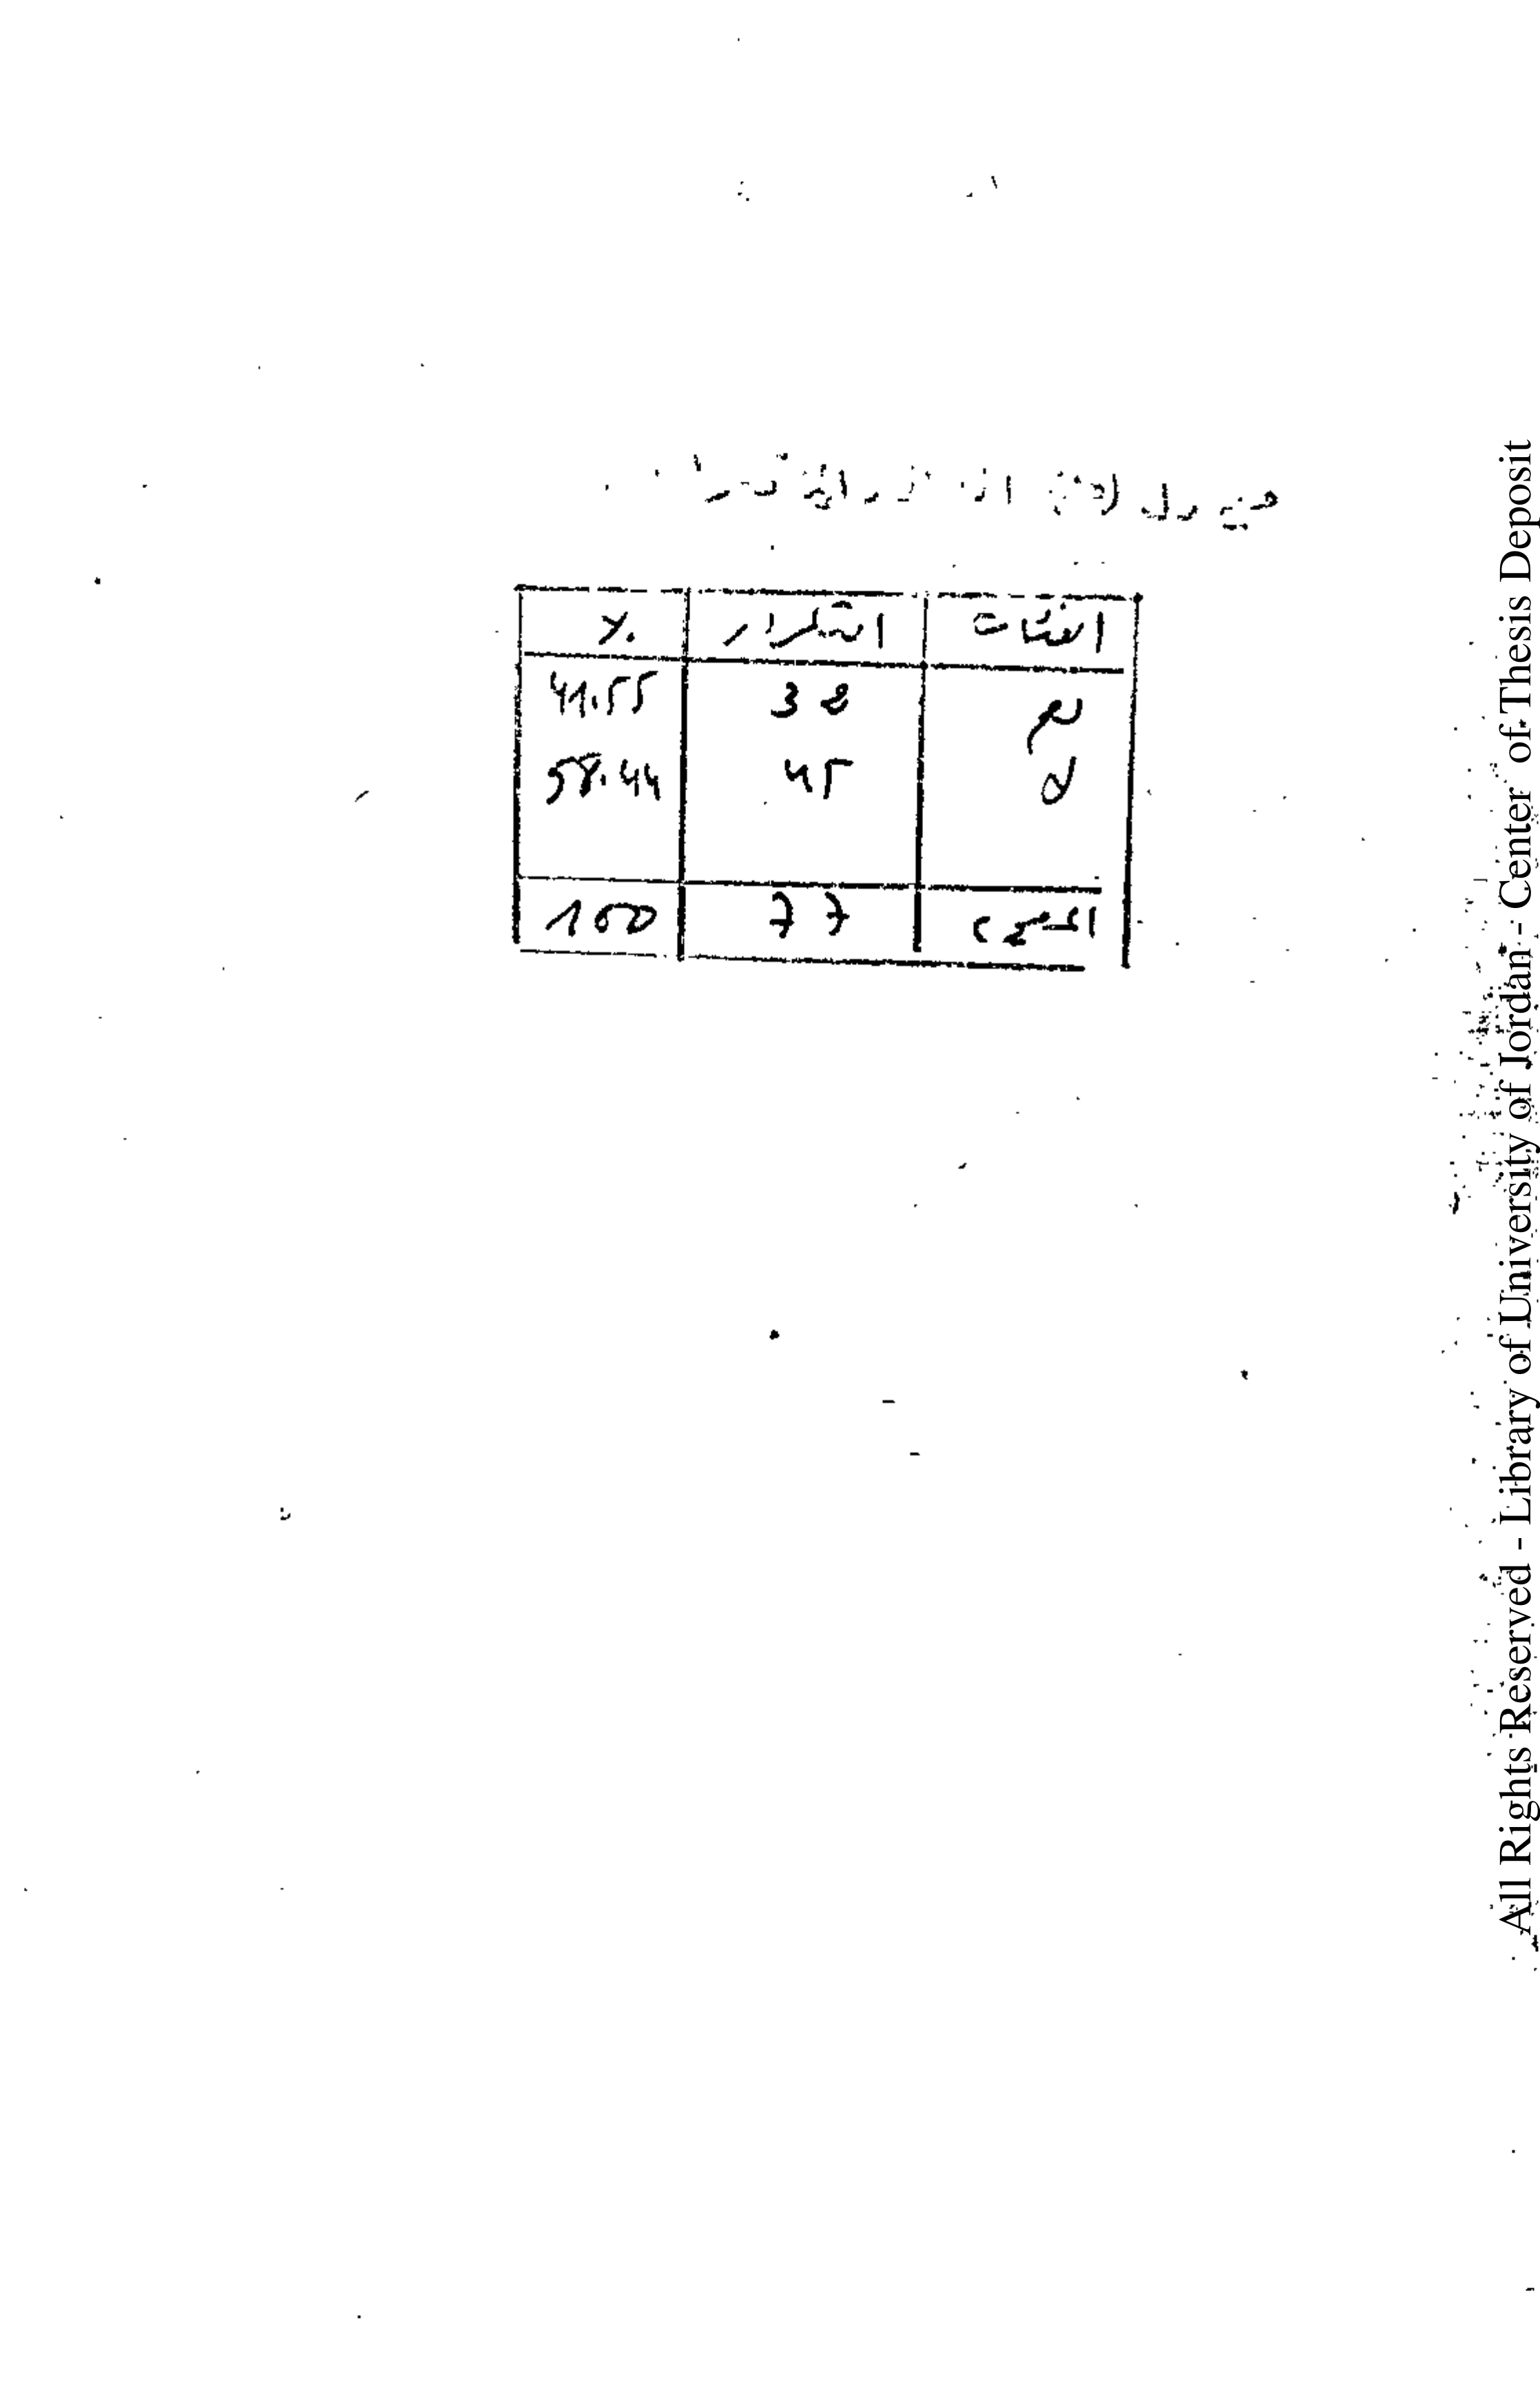 جدول
الفئات التكرار %
نعم 32 41.55
لا 45 58.44
المجموع 77 100
All Rights Reserved - Library of University of Jordan - Center of Thesis Deposit